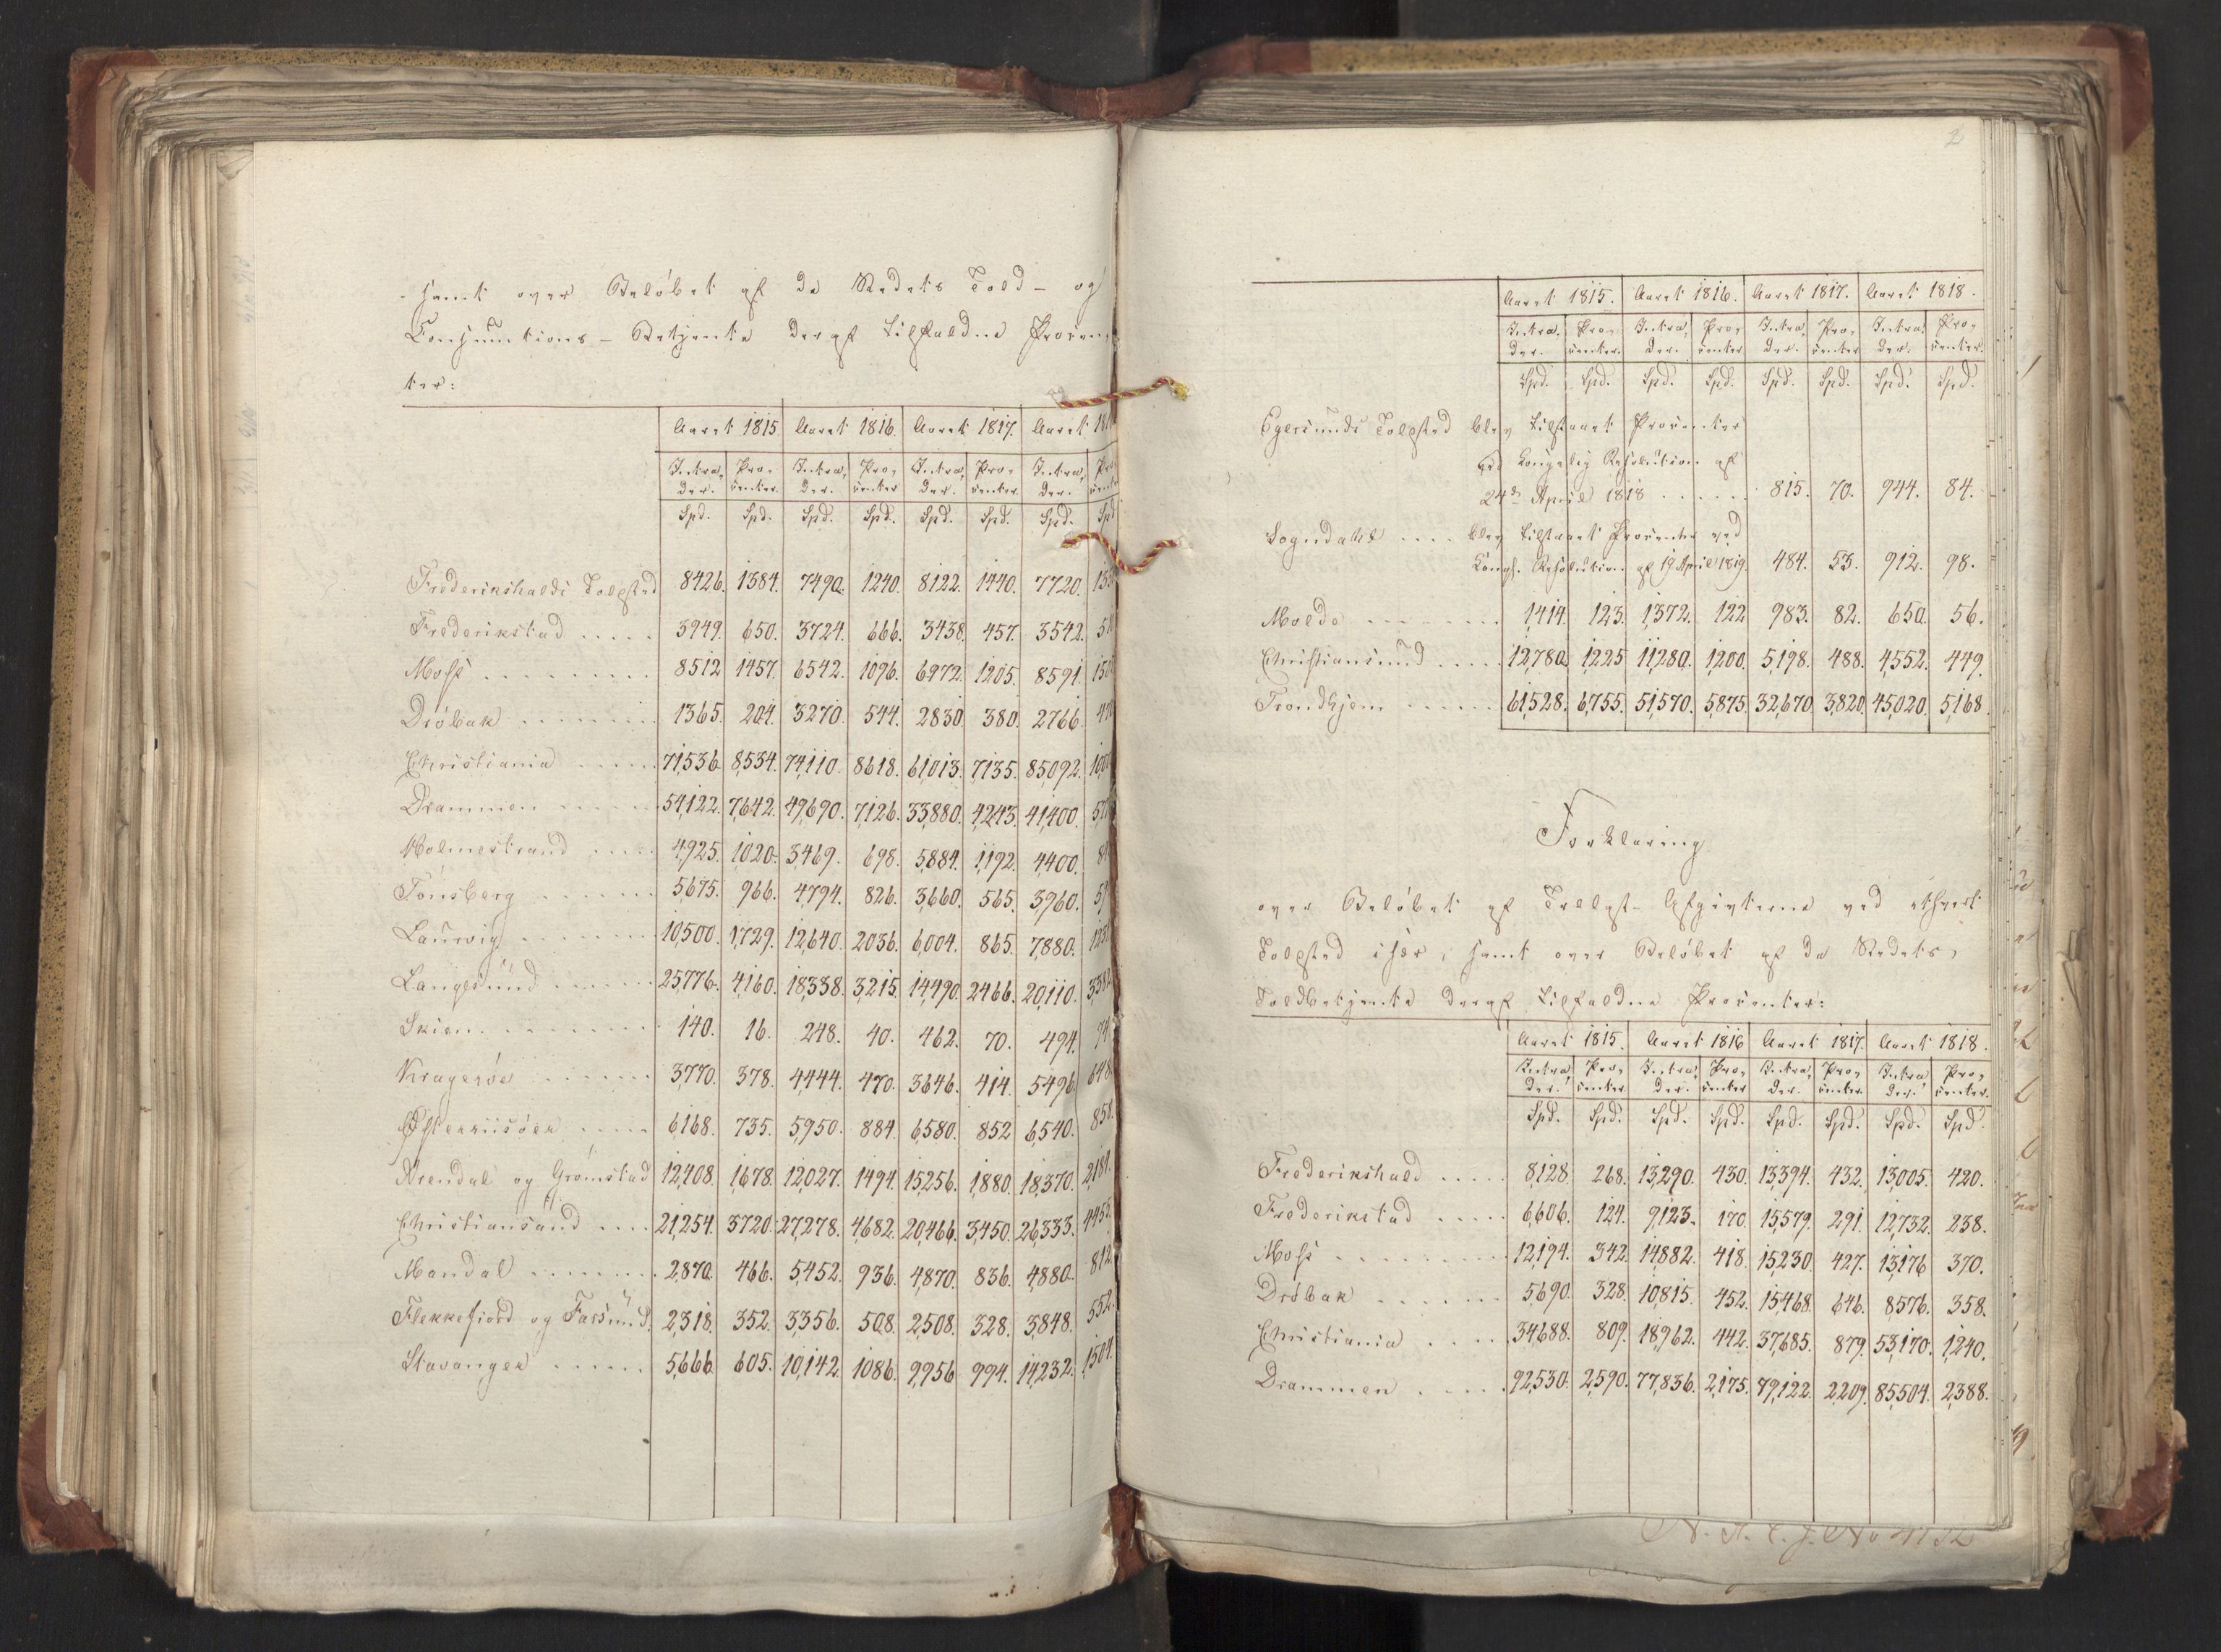 samt over Beløbet af de Stedets Told- og
Consumtions-Betjente deraf tilfaldne Proven-
ter:
Aaret 1815 Aaret 1816. Aaret 1817. Aaret
Intra- Pro- Intra- Pro- Intra- Pro- Intra-
der. venter. der. venter der. venter. der.
Spd. Spd. Spd. Spd. Spd. Spd. Spd. Spd
Frederikshalds Toldsted 8426. 1384. 7490. 1240. 8122. 1440. 7720.
Frederikstad ..... 3949. 650. 3724. 666. 3438. 457. 3542.
Moss ......... 8512 1457. 6542. 1096. 6972. 1205. 8591.
Dröbak ....... 1365. 204. 3270. 544. 2830. 380. 2766.
Christiania ..... 71,536. 8,534. 74,110. 8618. 61,013. 7,135. 85,092.
Drammen ...... 54,122. 7,642. 49,690. 7,126. 33,880. 4,243. 41,400.
Holmestrand .... 4,925. 1,020. 3,469. 698. 5,884. 1,192. 4,400.
Tönsberg ...... 5,675. 966. 4,794. 826. 3,660. 565. 3,960.
Laurvig ....... 10,500. 1,729. 12,640. 2036. 6,004. 865. 7,880.
Langesund ...... 25,776. 4,160. 18,338. 3,215. 14,490. 2466. 20,110. 3,382
Skien ........ 140. 16. 248. 40. 462. 70. 494. 74
Kragerøe ...... 3,770. 378. 4,444. 470. 3,646. 414. 5496. 648
Østerriisöer ..... 6,168. 735. 5,950. 884. 6,580. 852 6,540. 858.
Arendal og Grömstad 12,408. 1,678. 12,027. 1494. 15,256. 1,880. 18,370. 2,184.
Christiansand .... 21,254. 3720. 27,278. 4,682. 20,466. 3,450. 26,333. 4455.
Mandal ....... 2,870. 466. 5,452. 936. 4,870. 836. 4,880. 812.
Flekkefiord og Farsund. 2,318. 352. 3,356. 508. 2,508. 328. 3,848. 552.
Stavanger ...... 5,666. 605. 10,142. 1086. 9,956 994. 14,232. 1,504.
Aaret 1815. Aaret 1816. Aaret 1817. Aaret 1818.
Intra- Pro- Intra- Pro- Intra- Pro- Intra- Pro-
der. venter. der. venter der. venter der. venter.
Spd. Spd. Spd. Spd. Spd. Spd. Spd. Spd.
Egersunds Toldsted blev tilstaaet Proventer
ved Kongelig Resolution af
24de April 1818 ...... 815. 70. 944. 84.
Sogndahl .... blev tilstaaet Proventer ved
Kongl. Resolution af 19 April 1819. 484. 53. 912. 98.
Molde ........ 1,414. 123. 1,372. 122 983. 82. 650. 56.
Christiansund ..... 12,780. 1,225 11,280. 1,200. 5,198. 488. 4,552. 449.
Trondhjem ...... 61,528. 6,755. 51,570. 5,875. 32,670. 3,820. 45,020. 5,168.
Forklaring
over Beløbet af Trælast-Afgivterne ved ethvert
Toldsted især, samt over Beløbet af de Stedets
Toldbetjente deraf tilfaldne Proventer:
Aaret 1815. Aaret 1816 Aaret 1817. Aaret 1818.
Intra- Pro- Intra- Pro- Intra- Pro- Intra- Pro-
der. venter der. venter der. venter. der. venter.
Spd. Spd. Spd. Spd. Spd. Spd. Spd. Spd.
Frederikshald ..... 8,128. 268. 13,290. 430. 13,394. 432. 13,005. 420.
Frederikstad ..... 6,606. 124. 9,123. 170. 15,579. 291. 12,732. 238.
Moss ......... 12,194. 342. 14,882. 418. 15,230. 427. 13,176 370.
Dröbak ....... 5,690. 328. 10,815. 452. 15,468. 646. 8,576. 358.
Christiania ..... 34,688. 809. 18,962. 442. 37,685. 879. 53,170. 1,240.
Drammen ..... 92,530. 2,590. 77,836. 2,175. 79,122. 2,209. 85,504. 2,388.